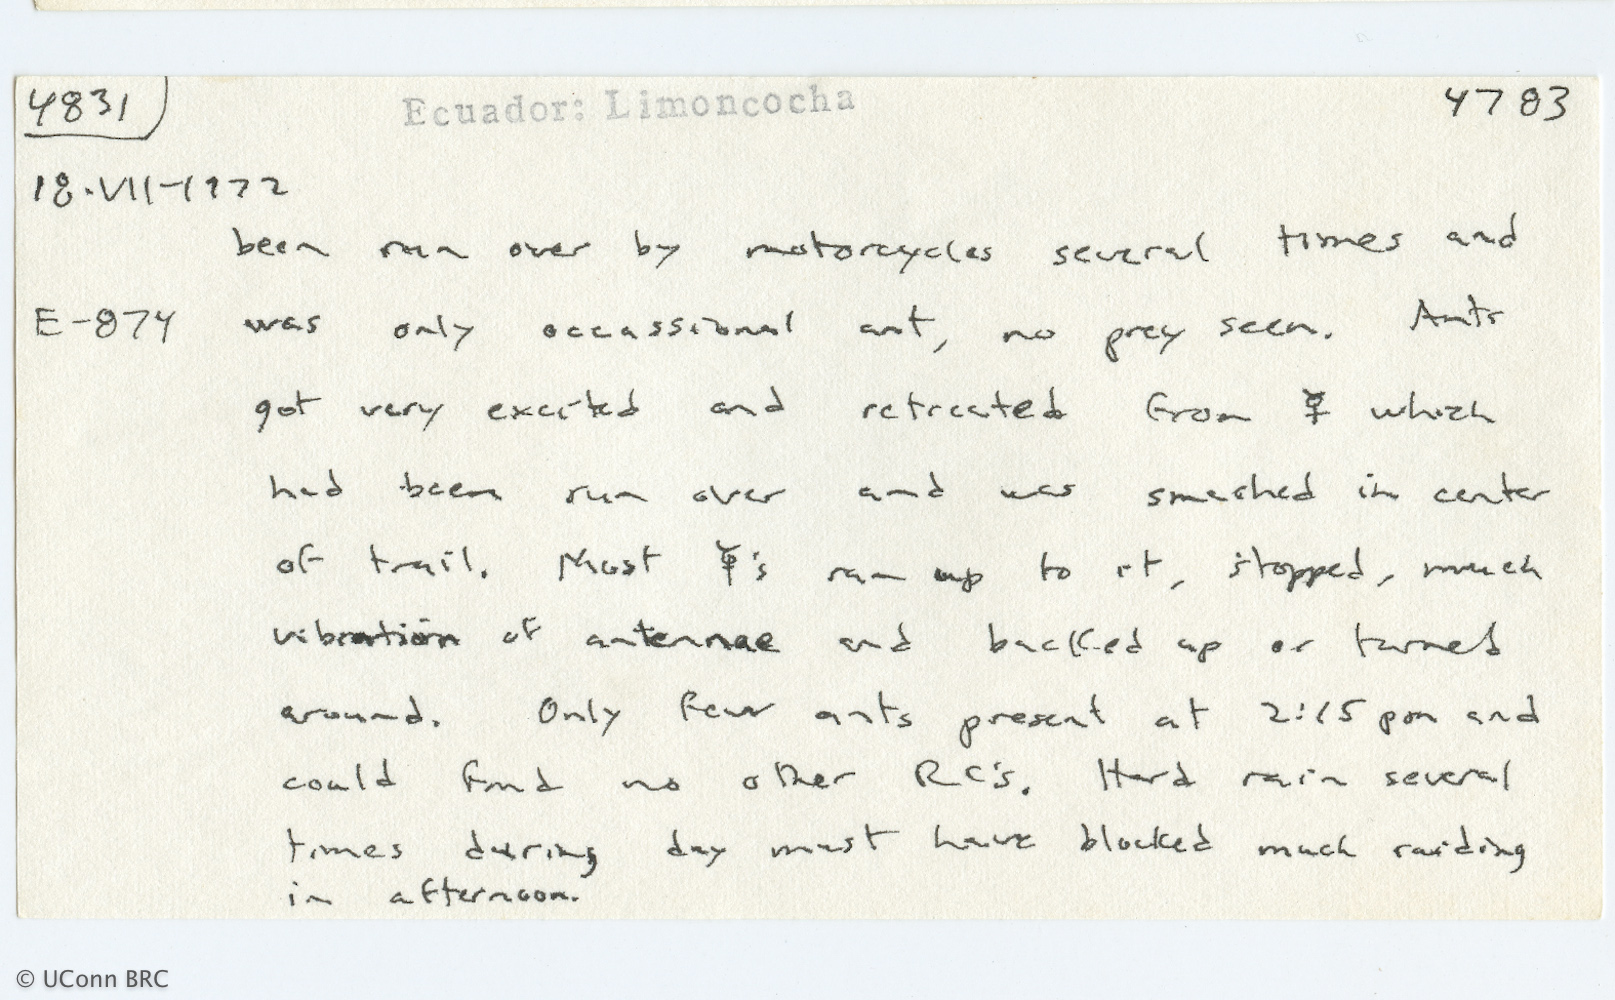 4831 Ecuador: Limoncocha 4783
18-VII-1972
been run over by motorcycles several times and
E-874 was only occassional ant, no prey seen. Ants
got very excited and retreated from ☿ which
had been run over and was smashed in center
of trail. Most ☿'s ran up to it, stopped, much
vibration of antennae and backed up or turned
around. Only few ants present at 2:15 pm and
could find no other RC's. Hard rain several
times during day must have blocked much raiding
in afternoon.
© UConn BRC